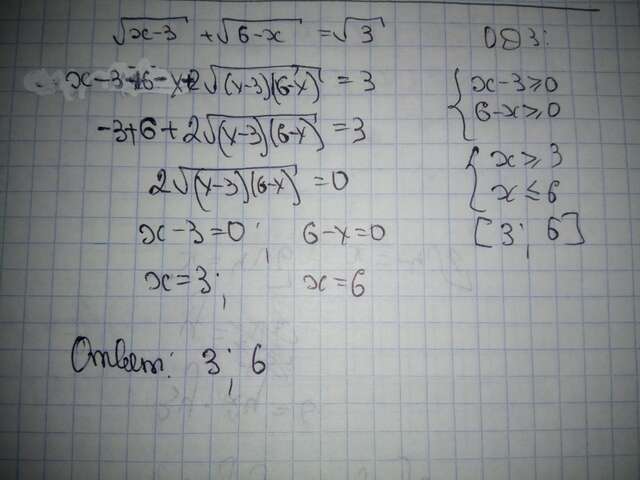 √x-3 + √6-x = √3
x-3+6-x+2√(x-3)(6-x) = 3
-3+6+2√(x-3)(6-x) = 3
2√(x-3)(6-x) = 0
x-3=0; 6-x=0
x=3; x=6
Ответ: 3; 6
ОДЗ:
{ x-3≥0
6-x≥0
{ x≥3
x≤6
[3; 6]